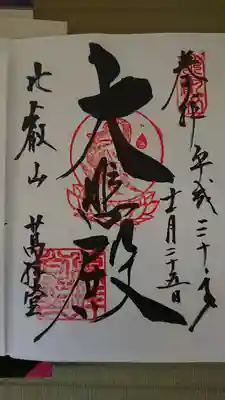 奉拝 平成三十年
十一月二十五日
大悲殿
比叡山 萬拝堂